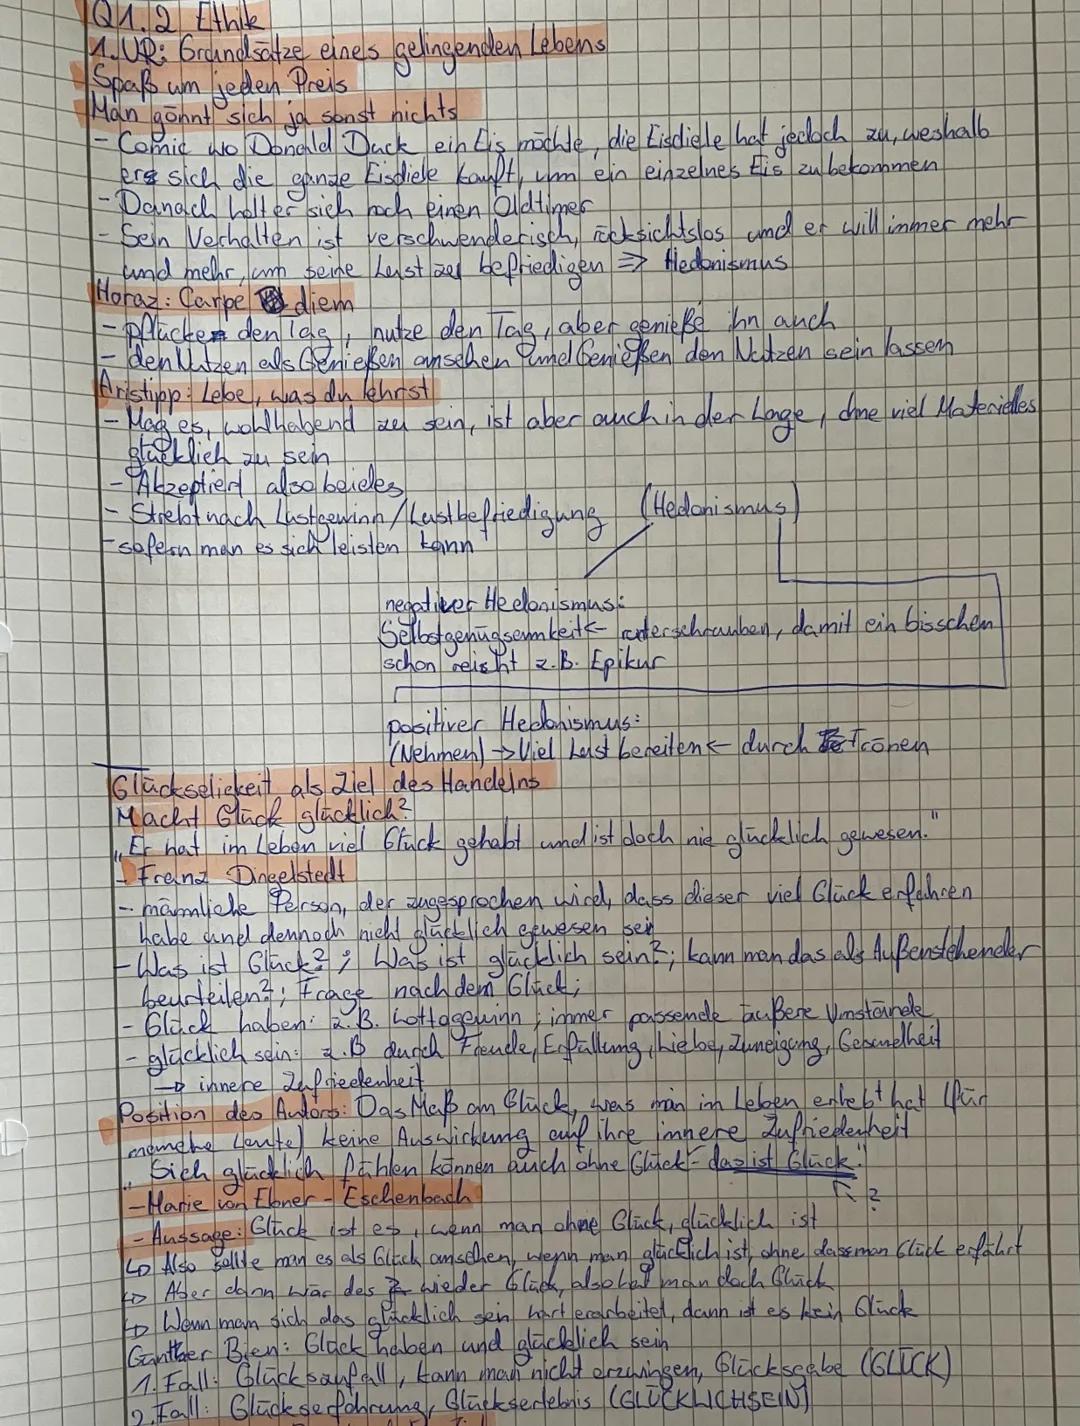 Q1.2 Ethik
1. UR: Grundsätze eines gelingenden Lebens
Spaß um jeden Preis
Man gönnt sich ja sonst nichts
- Comic wo Donald Duck ein Eis möchte, die Eisdiele hat jedoch zu, weshalb
er sich die ganze Eisdiele kauft, um ein einzelnes Eis zu bekommen
- Danach holt er sich noch einen Oldtimer
- Sein Verhalten ist verschwenderisch, rücksichtslos und er will immer mehr
und mehr, um seine Lust zu befriedigen => Hedonismus
Horaz: Carpe diem
- pflücke den Tag, nutze den Tag, aber genieße ihn auch
- den Nutzen als Genießen ansehen und Genießen den Nutzen sein lassen
Aristipp: Lebe, was du lehrst
- Mag es, wohlhabend zu sein, ist aber auch in der Lage, ohne viel Materielles
glücklich zu sein
- Akzeptiert also beides
- Strebt nach Lustgewinn/Lustbefriedigung (Hedonismus)
- sofern man es sich leisten kann
negativer Hedonismus:
Selbstgenügsamkeit ← runterschrauben, damit ein bisschen
schon reicht z.B. Epikur
positiver Hedonismus:
(Nehmen) → Viel Lust bereiten ← durch
Glückseligkeit als Ziel des Handelns
Macht Glück glücklich?
„Er hat im Leben viel Glück gehabt und ist doch nie glücklich gewesen."
- Franz Dingelstedt
- männliche Person, der zugesprochen wird, dass dieser viel Glück erfahren
habe und dennoch nicht glücklich gewesen sei
- Was ist Glück?; Was ist glücklich sein?; kann man das als Außenstehender
beurteilen?; Frage nach dem Glück;
- Glück haben: z.B. Lottogewinn; immer passende äußere Umstände
- glücklich sein: z.B durch Freude, Erfüllung, Liebe, Zuneigung, Gesundheit
→ innere Zufriedenheit
Position des Autors: Das Maß an Glück, was man im Leben erlebt hat (für
manche Leute) keine Auswirkung auf ihre innere Zufriedenheit
„Sich glücklich fühlen können auch ohne Glück - das ist Glück."
?
- Marie von Ebner-Eschenbach
- Aussage: Glück ist es, wenn man ohne Glück, glücklich ist
↳ Also sollte man es als Glück ansehen, wenn man glücklich ist, ohne dass man Glück erfährt
↳ Aber dann wär das wieder Glück, also hat man doch Glück
↳ Wenn man sich das glücklich sein hart erarbeitet, dann ist es kein Glück
Günther Bien: Glück haben und glücklich sein
1. Fall: Glückszufall, kann man nicht erzwingen, Glücksgabe (GLÜCK)
2. Fall: Glückserfahrung, Glückserlebnis (GLÜCKLICHSEIN)